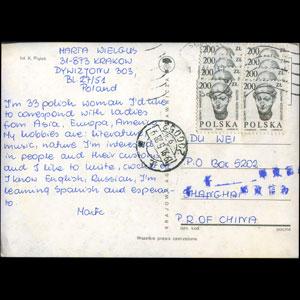 fot. K. Piątek
MARTA WIELGUS
31-873 KRAKOW
DYWIZJONU 303,
BL 27/51
Poland
I'm 33 polish woman I'd like
to correspond with ladies
from Asia, Europa, America
My hobbies are: literature
music, nature I'm interested
in people and their customs
and I like to write, cook
I know English, Russian, I'm
learning Spanish and espera-
to.
Marte
KRAJOWA
200 zł 200 zł
200 zł 200 zł
POLSKA POLSKA
DU WEI
P.O BOX 5202
SHANGHAI
P.R.OF CHINA
kod
poczta
Wszelkie prawa zastrzeżone